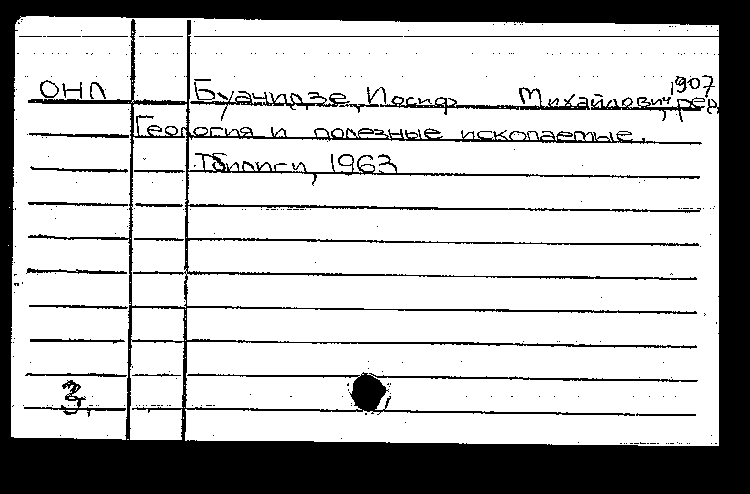 ОНЛ Буанидзе, Иосиф Михайлович, 1907 ред.
Геология и полезные ископаемые.
Тбилиси, 1963
З.